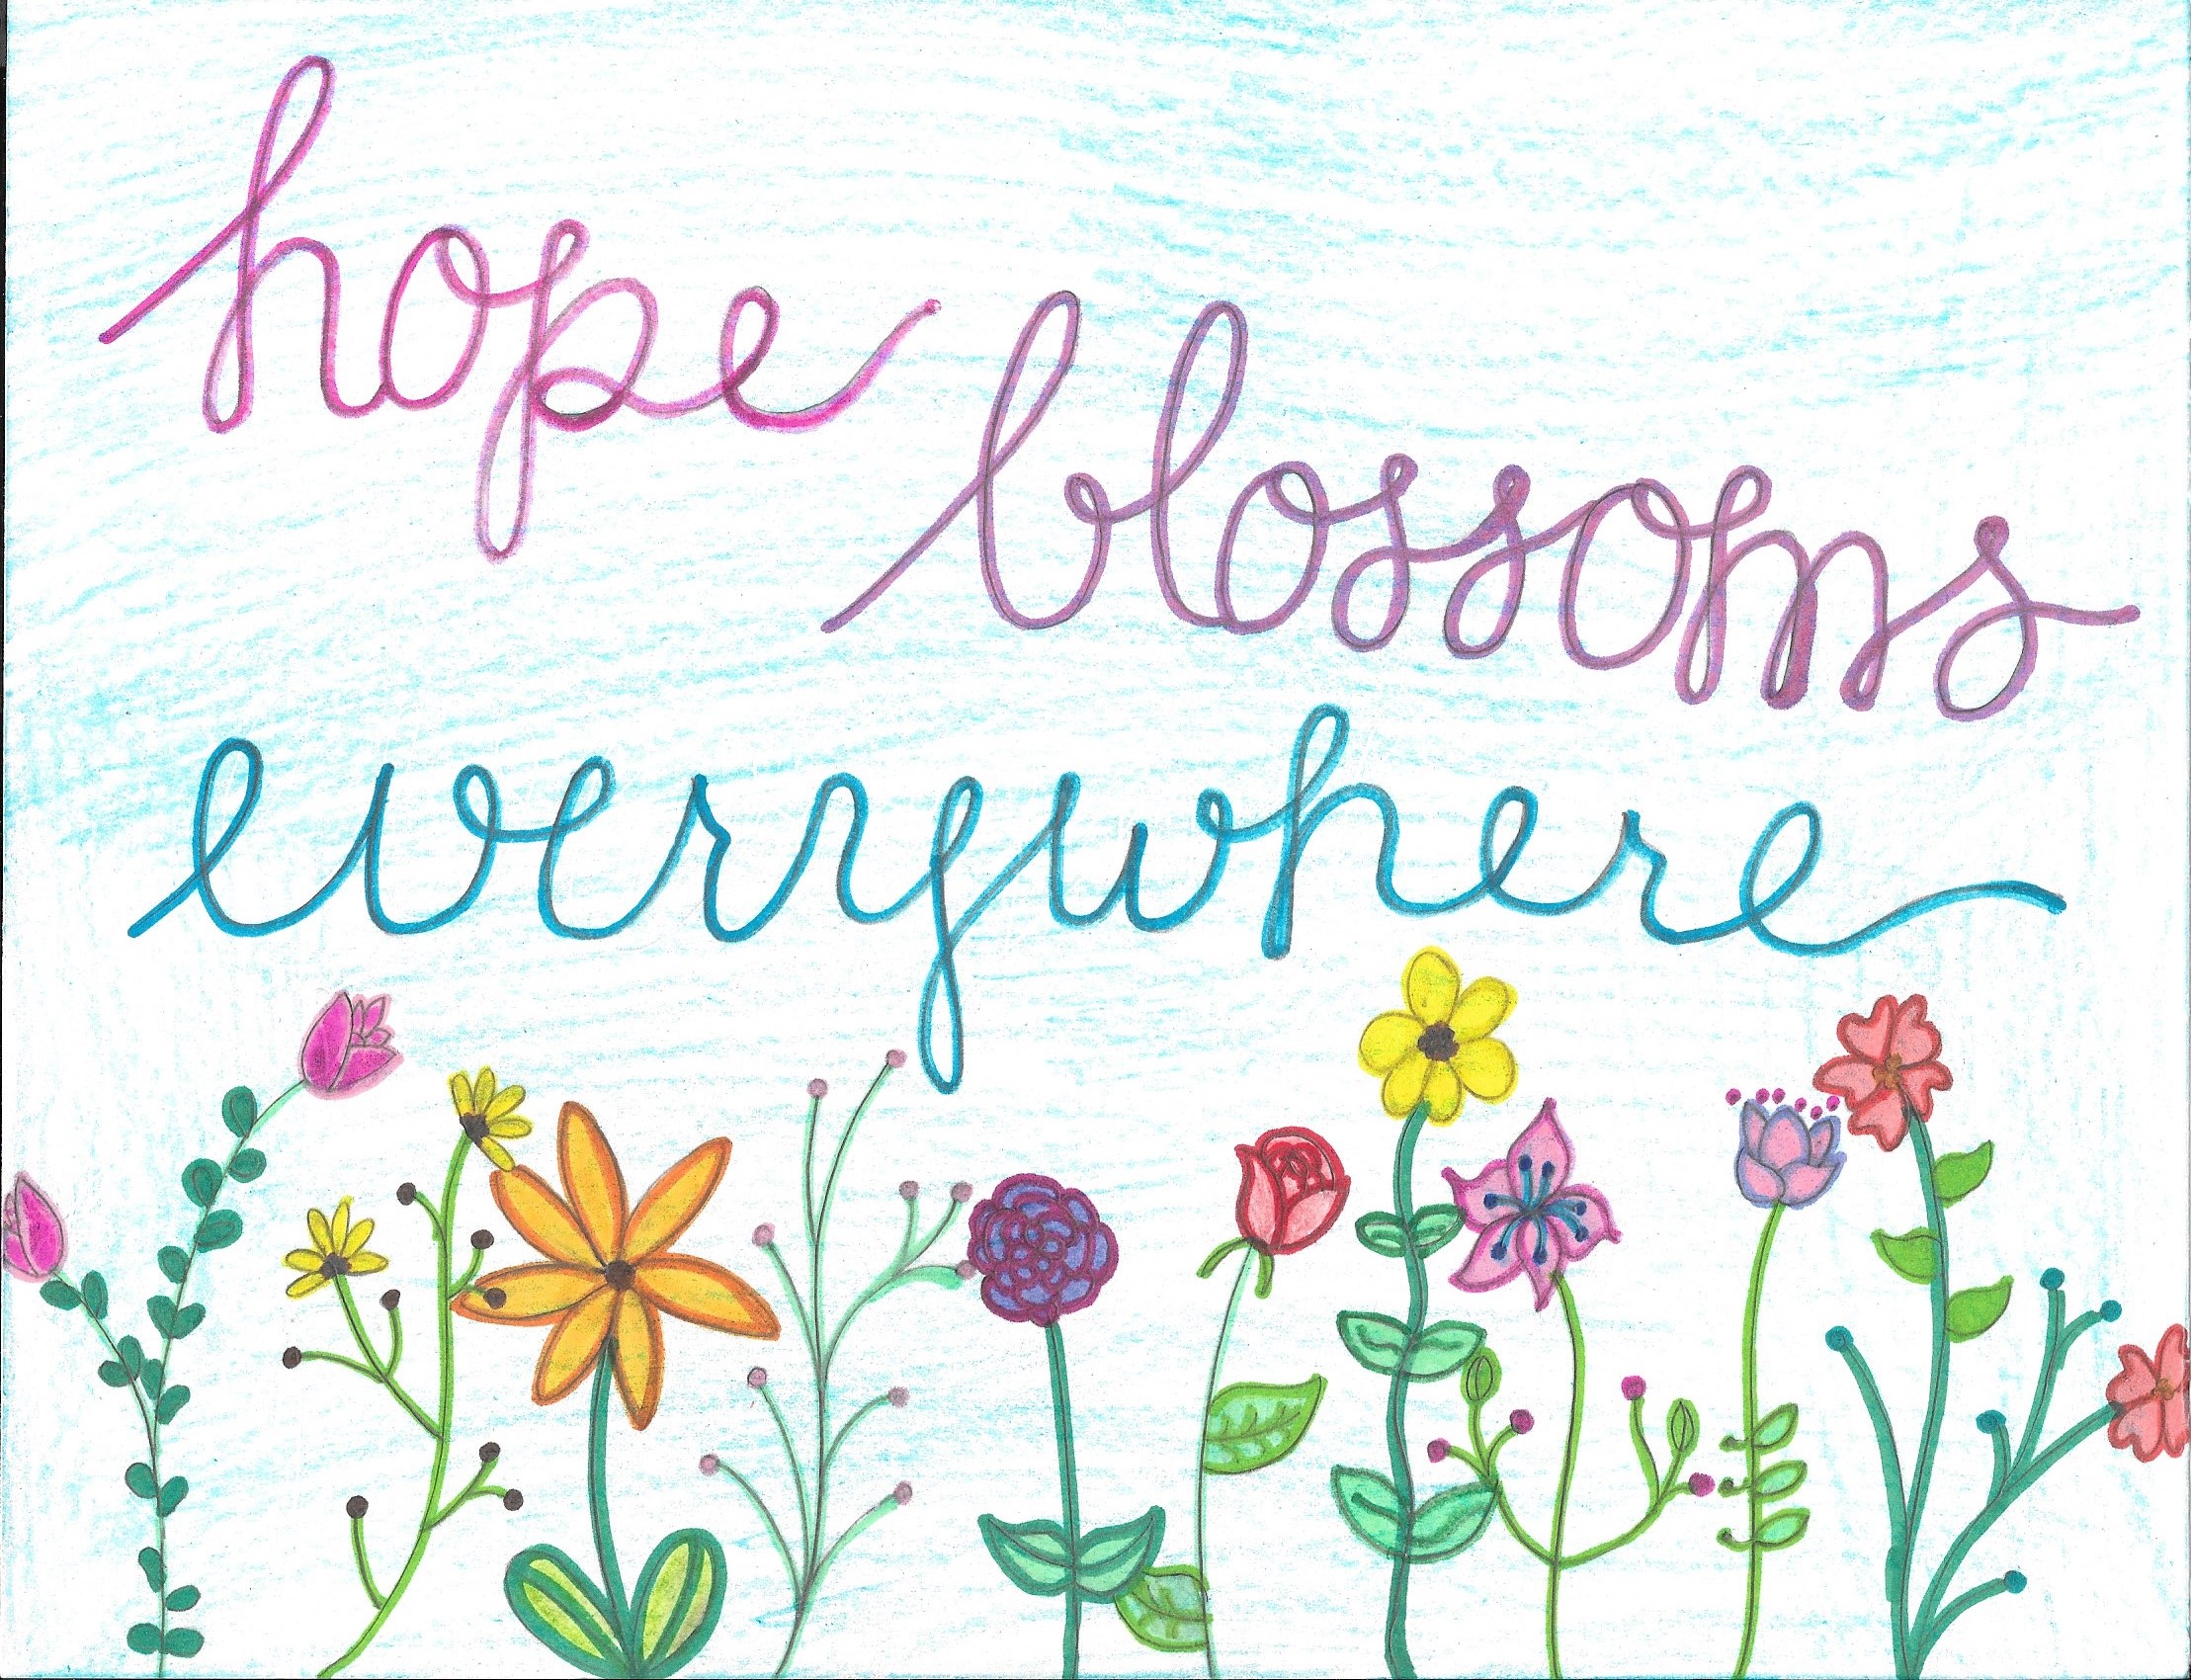 hope
blossoms
everywhere